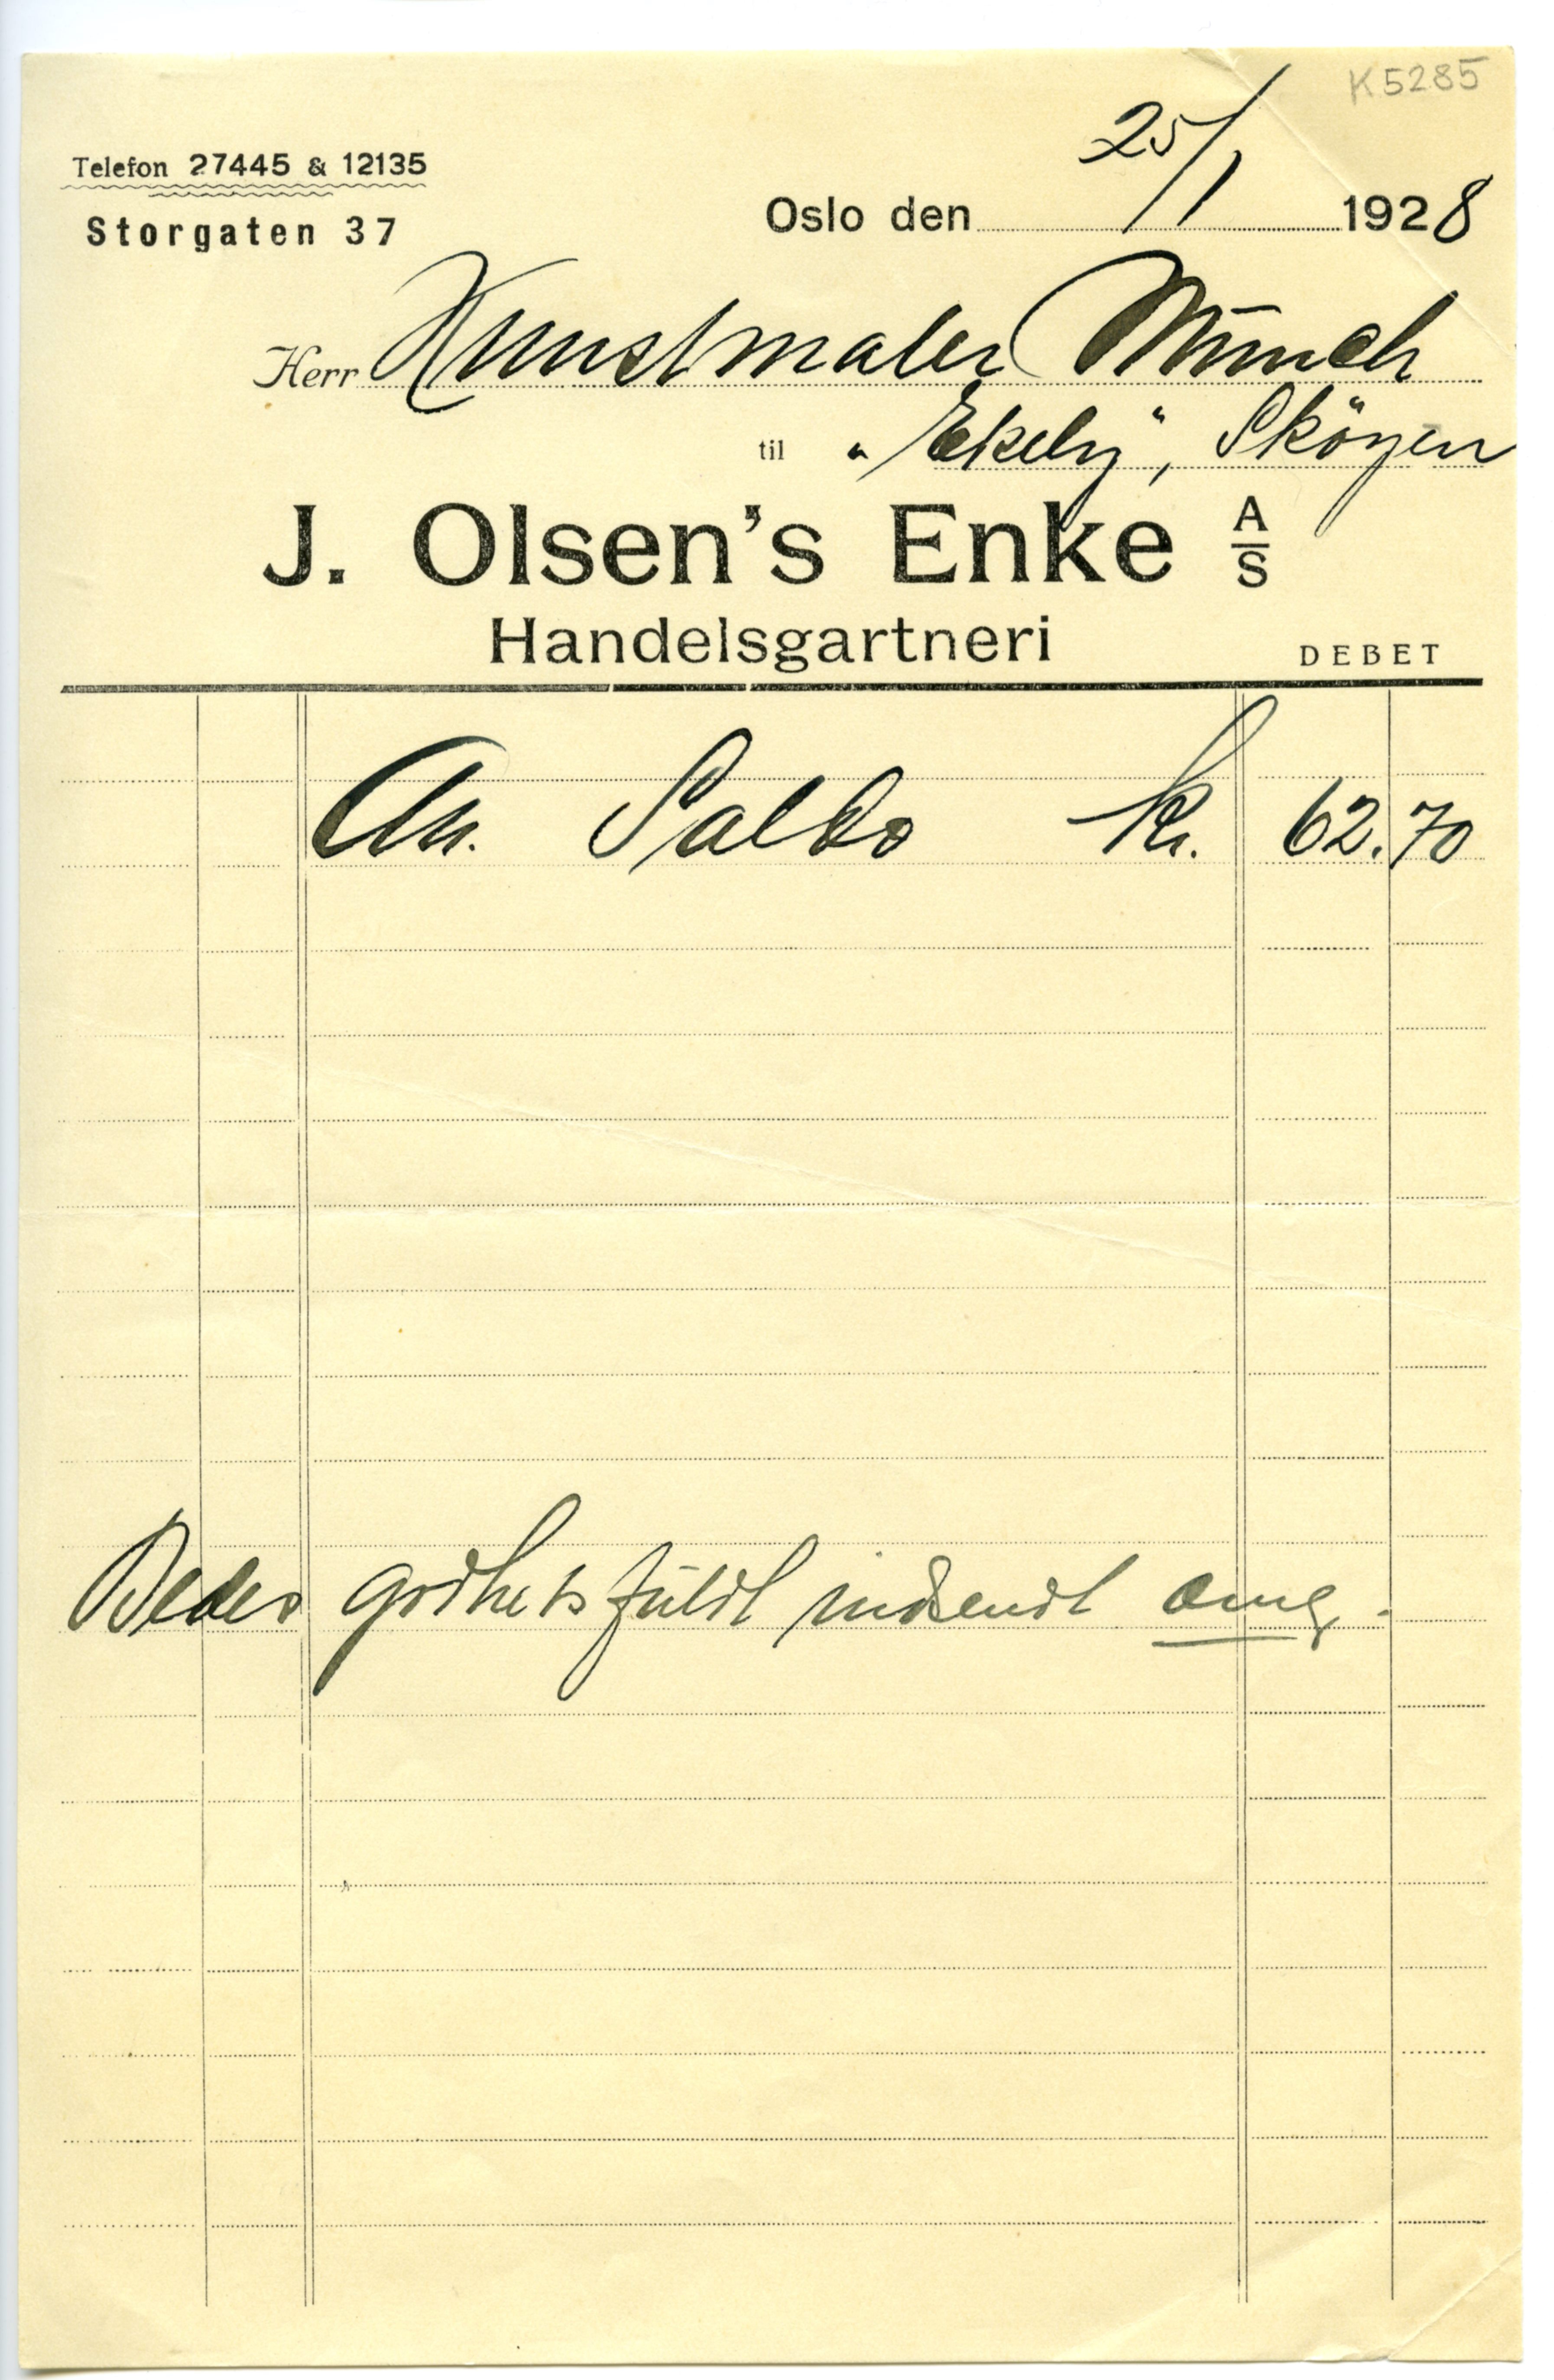 K5285
Telefon 27445 & 12135
Storgaten 37
Oslo den 25/1 1928
Herr Kunstmaler Münch
til "Ekely", Sköyen
J. Olsen's Enke A/S
Handelsgartneri
DEBET
An. Saldo kr. 62.70
Bedes godhetsfuldt indsendt omg.